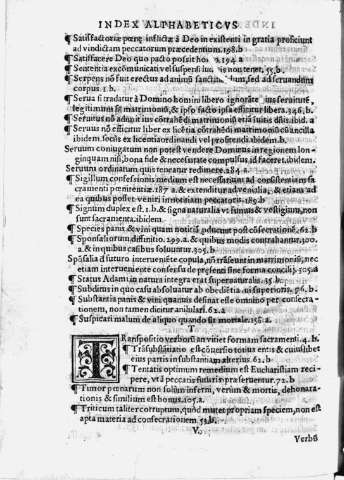 INDEX ALPHABETICVS
¶ Satisfactoriæ pœnę inflictæ à Deo in existenti in gratia proficiunt
ad vindictam peccatorum præcedentium. 198. b
¶ Satisfacere Deo quo pacto possit homo. 194. a
¶ Sententia excõmunicati vel suspensi non tenet. 55. b.
¶ Serpens nõ fuit erectus ad animũ sanctificandum, sed ad seruandũ
corpus. 1. b.
¶ Serua si tradatur à Domino homini libero ignorante
legitimum sit matrimoniũ, & ipso facto ipsa efficitur libera. 346. b.
¶ Seruus nõ efficitur liber ex licẽtia cõtrahẽdi matrimoniũ cũ ancilla
ibidem. secus ex licentia ordinandi vel profitendi. ibidem.
Seruum coniugatum non potest vendere Dominus in regionem lon-
ginquam nisi, bona fide & necessitate compulsus id faceret. ibidem.
Seruum ordinatum quis teneatur redimere. 284. a.
¶ Sigillum confessionis medium est necessarium ad consistentiam sa
cramenti pœnitentiæ. 187. a. & extenditur ad venialia, & etiam ad
ea quibus posset veniri in notitiam peccatoris. 189. b
¶ Signum duplex est. 1. b. & signa naturalia vt fumus & vestigium, non
sunt sacramenta. ibidem.
¶ Species panis & vini quam notitiã pducunt post cõsecrationẽ. 62. b
¶ Sponsalitorum diffinitio. 299. a. & quibus modis contrahantur. 300.
a. & in quibus casibus soluantur. 305. b.
Spõsalia d futuro interueniẽte copula, nõ trãseunt in matrimoniũ, nec
etiam interueniente consensu de presenti sine forma concilij. 305. a
¶ Status Adam in natura integra erat supernaturalis. 35. b.
¶ Subditus in quo casu absoluatur ab obediẽtia sui superioris. 96. b.
¶ Substantia panis & vini quamuis desinat esse omnino per consecra-
tionem, non tamen dicitur anihilari. 62. a
¶ Suspicari malum de aliquo quando sit mortale. 156. a.
T
TRanspositio verborũ an vitiet formam sacramenti. 4. b.
¶ Trãsubstãtiatio est cõuersio totius entis & cuiuslibet
eius partis in substantiam alterius. 62. b.
¶ Tentatis optimum remedium est Eucharistiam reci-
pere, vt à peccatis futuris præseruentur. 72. b
¶ Timor pœnarum non solum inferni, verum & mortis, dehonora-
tionis & similium est bonus. 105. a.
¶ Triticum taliter corruptum, quod mutet propriam speciem, non est
apta materia ad consecrationem. 53. b.
Verbũ